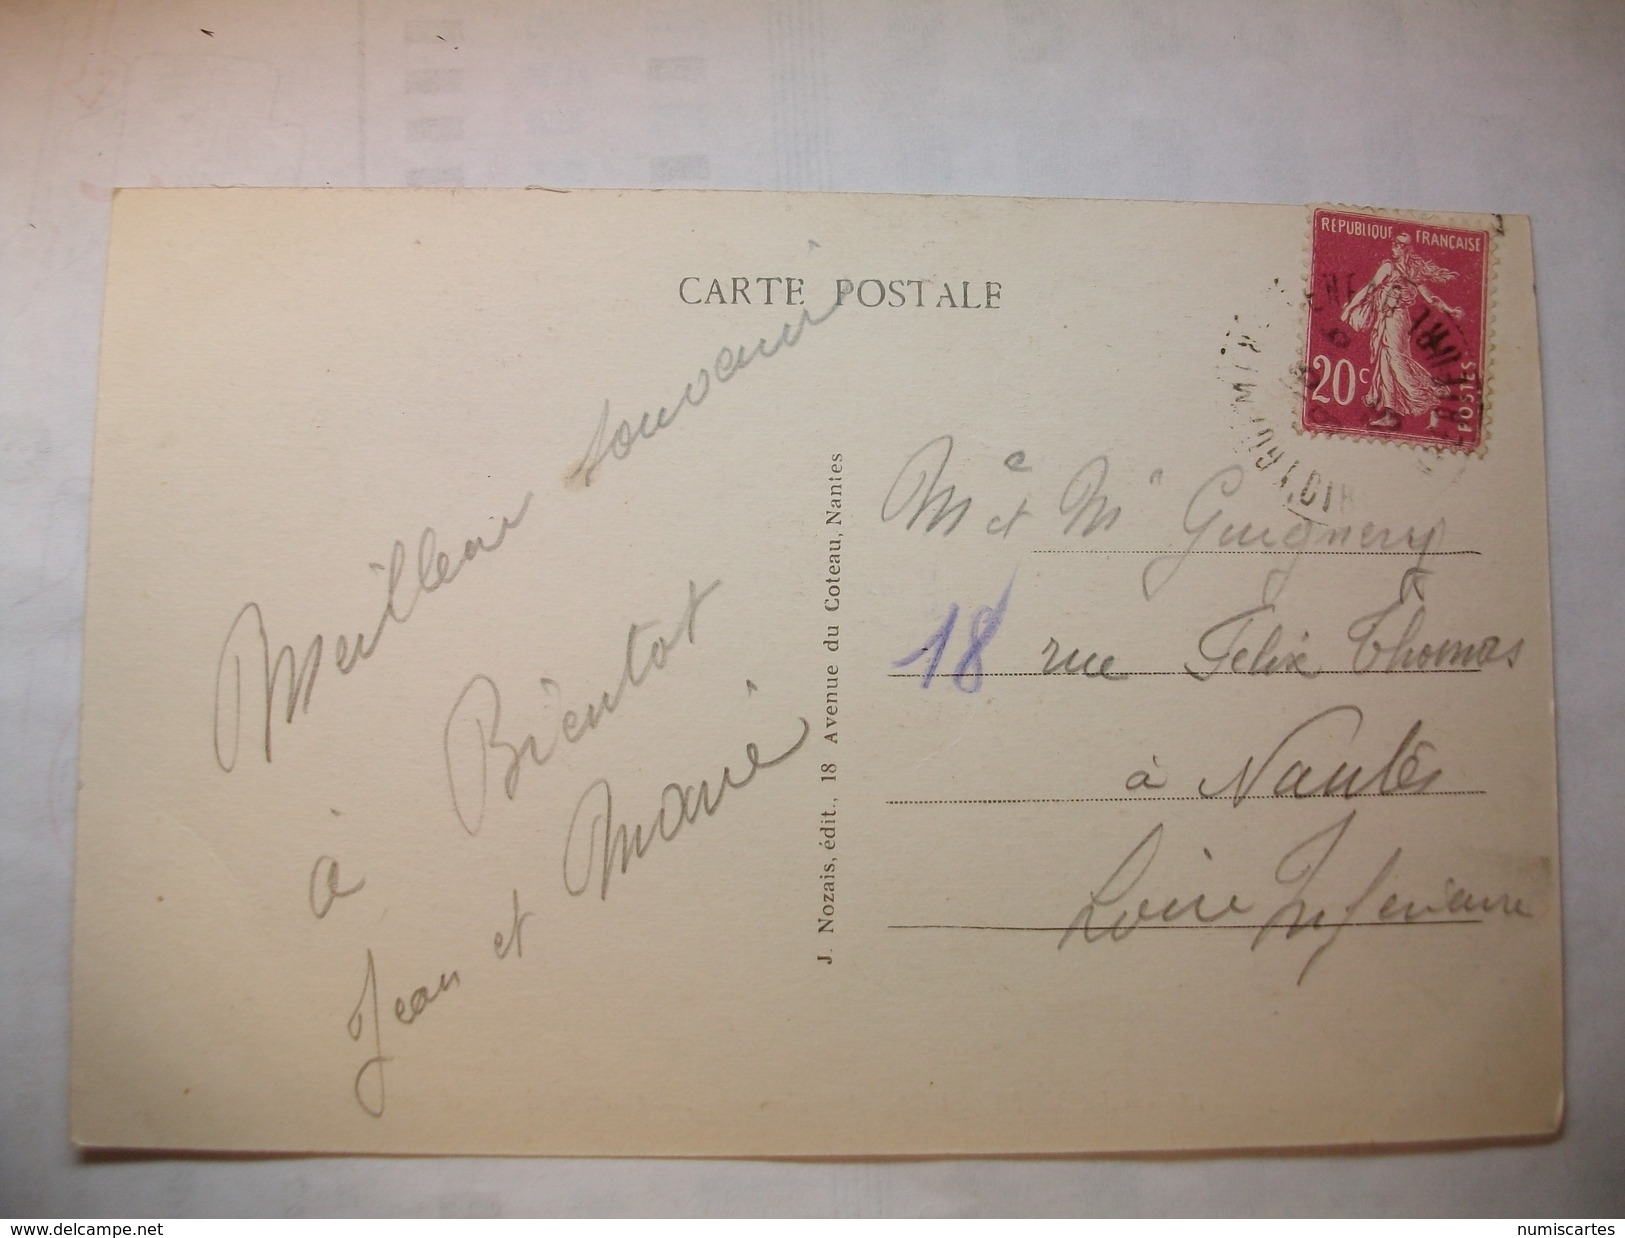 CARTE POSTALE
RÉPUBLIQUE FRANÇAISE
20c
POSTES
Meilleur souvenir
à Bientot
Jean et Marie
J. Nozais, édit., 18 Avenue du Coteau, Nantes
Mr et Me Guignery
18 rue Felix Thomas
à Nantes
Loire Inferieure
www.delcampe.net
numiscartes